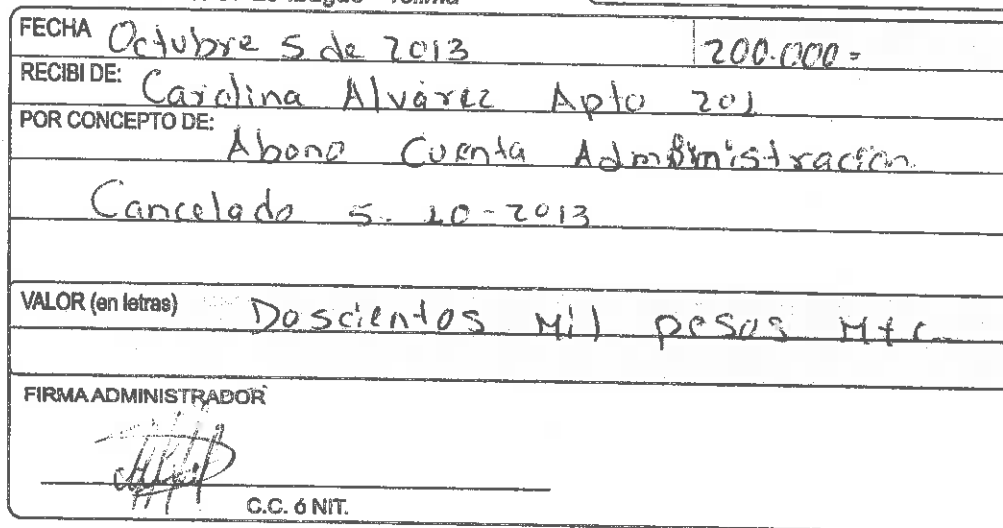 Ibagué - Tolima
FECHA Octubre 5 de 2013 200.000=
RECIBI DE: Carolina Alvárez Apto 201
POR CONCEPTO DE: Abono Cuenta Administración
Cancelado 5-10-2013
VALOR (en letras) Doscientos Mil pesos Mtc
FIRMA ADMINISTRADOR
C.C. ó NIT.